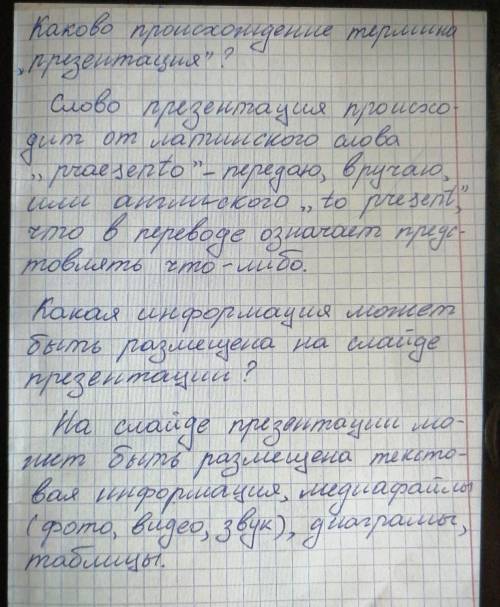 Каково происхождение термина
„презентация"?
Слово презентация происхо-
дит от латинского слова
„praesento" – передаю, вручаю,
или английского „to present",
что в переводе означает предс-
товлять что-либо.
Какая информация может
быть размещена на слайде
презентации?
На слайде презентации мо-
жет быть размещена тексто-
вая информация, медиафайлы
(фото, видео, звук), диаграмы,
таблицы.